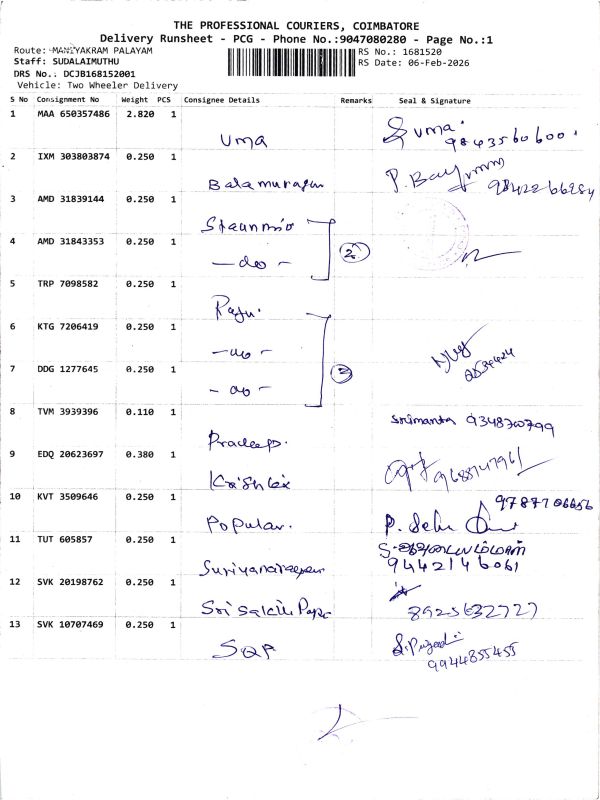 THE PROFESSIONAL COURIERS, COIMBATORE
Delivery Runsheet - PCG - Phone No.:9047080280 - Page No.:1
Route: MANIYAKRAM PALAYAM
RS No.: 1681520
Staff: SUDALAIMUTHU
RS Date: 06-Feb-2026
DRS No.. DCJB168152001
Vehicle: Two Wheeler Delivery
S No Consignment No Weight PCS Consignee Details Remarks Seal & Signature
1 MAA 650357486 2.820 1
Uma Uma. 9843560600.
2 IXM 303803874 0.250 1
Balamurugan P.
3 AMD 31839144 0.250 1
4 AMD 31843353 0.250 1
- do - 2
5 TRP 7098582 0.250 1
Raju.
6 KTG 7206419 0.250 1
- do -
7 DDG 1277645 0.250 1
- do - 3
8 TVM 3939396 0.110 1
Pradeep.
9 EDQ 20623697 0.380 1
10 KVT 3509646 0.250 1
Popular. P. 9787706656
11 TUT 605857 0.250 1
9442146061
12 SVK 20198762 0.250 1
Sri Sakthi 8925632727
13 SVK 10707469 0.250 1
SQP 9944855455